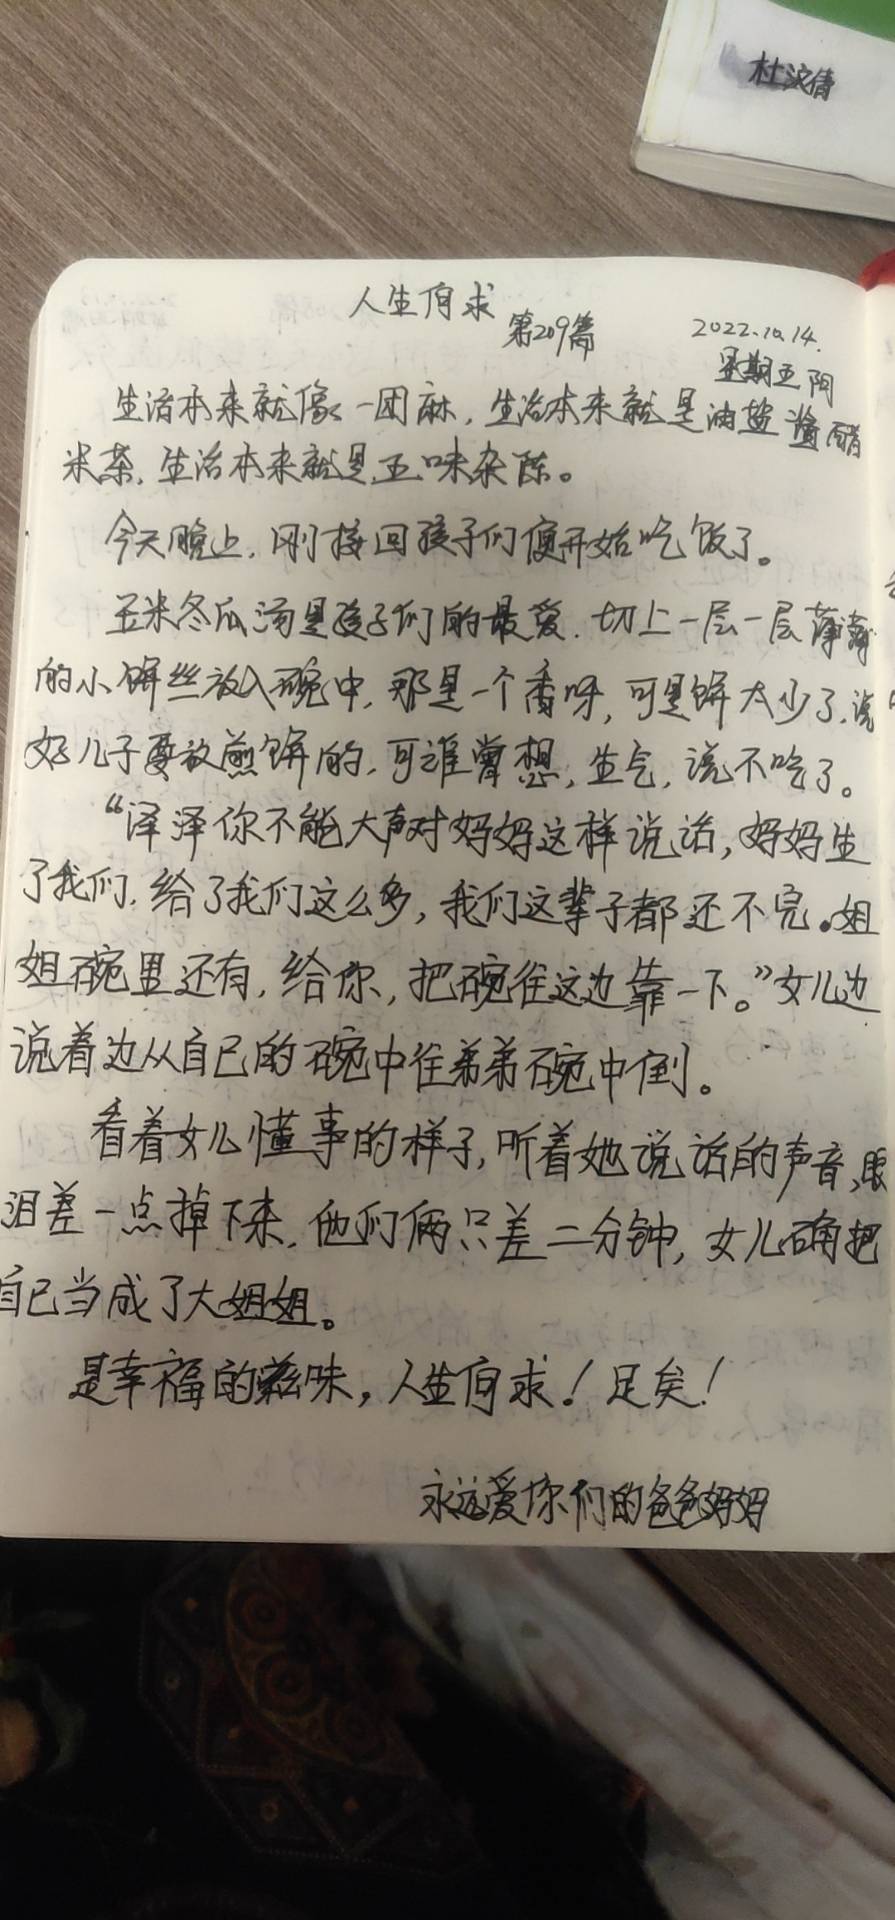 杜汶倩
人生何求
第209篇
2022.10.14.
星期五 阴
生活本来就像一团麻，生活本来就是油盐酱醋
米茶，生活本来就是五味杂陈。
今天晚上，刚接回孩子们便开始吃饭了。
玉米冬瓜汤是孩子们的最爱，切上一层一层薄薄
的小饼丝放入碗中，那是一个香呀，可是饼太少了，说
好儿子要放煎饼的，可谁曾想，生气，说不吃了。
“泽泽你不能大声对妈妈这样说话，妈妈生
了我们，给了我们这么多，我们这辈子都还不完。姐
姐碗里还有，给你，把碗往这边靠一下。”女儿边
说着边从自己的碗中往弟弟碗中倒。
看着女儿懂事的样子，听着她说话的声音，眼
泪差一点掉下来，他们俩只差二分钟，女儿确把
自己当成了大姐姐。
是幸福的滋味，人生何求！足矣！
永远爱你们的爸爸妈妈